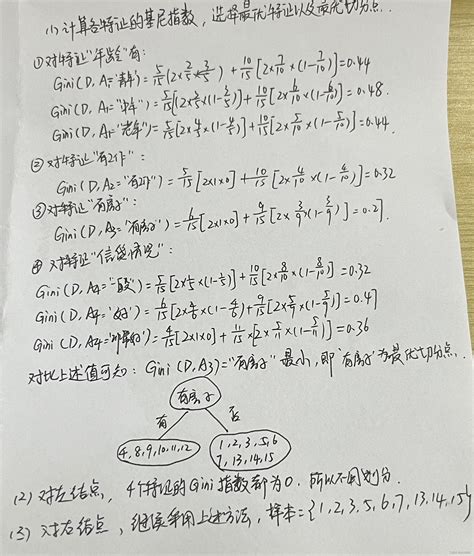 (1) 计算各特征的基尼指数, 选择最优特征以及最优切分点.
① 对特征"年龄"有:
Gini(D, A₁="青年") = 5/15(2×2/5×3/5) + 10/15[2×7/10×(1-7/10)] = 0.44
Gini(D, A₁="中年") = 5/15[(2×2/5×(1-2/5)] + 10/15[2×6/10×(1-6/10)] = 0.48.
Gini(D, A₁="老年") = 5/15[2×4/5×(1-4/5)] + 10/15[2×5/10×(1-5/10)] = 0.44.
② 对特征"有工作":
Gini(D, A₂="有工作") = 5/15[2×1×0] + 10/15[2×4/10×(1-4/10)] = 0.32
③ 对特征"有房子"
Gini(D, A₃="有房子") = 6/15[2×1×0] + 9/15[2×3/9×(1-3/9)] = 0.27.
④ 对特征"信贷情况":
Gini(D, A₄="一般") = 5/15[2×1/5×(1-1/5)] + 10/15[2×8/10×(1-8/10)] = 0.32
Gini(D, A₄="好") = 6/15[2×4/6×(1-4/6)] + 9/15[2×5/9×(1-5/9)] = 0.47
Gini(D, A₄="非常好") = 4/15[2×1×0] + 11/15×[2×5/11×(1-5/11)] = 0.36
对比上述值可知: Gini(D, A₃)="有房子"最小, 即"有房子"为最优切分点.
有房子
有 否
4, 8, 9, 10, 11, 12
1, 2, 3, 5, 6
7, 13, 14, 15
(2) 对左结点, 4个特征的Gini指数都为0. 所以不用划分.
(3) 对右结点, 继续采用上述方法, 样本={1, 2, 3, 5, 6, 7, 13, 14, 15}